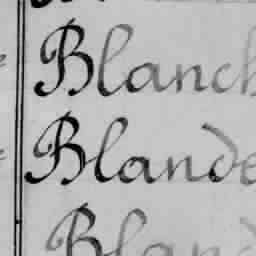 Blanch
Blande
Bland